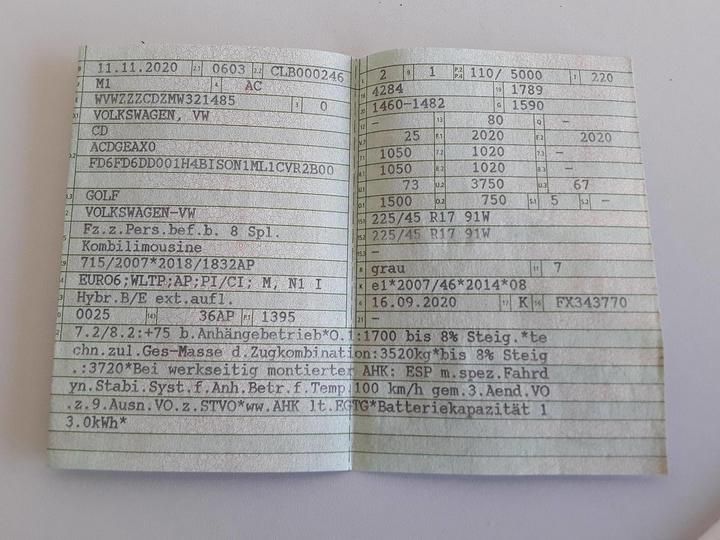 B 11.11.2020 2.1 0603 2.2 CLB000246
J M1 4 AC
E WVWZZZCDZMW321485 3 0
D.1 VOLKSWAGEN, VW
CD
D.2 ACDGEAX0
FD6FD6DD001H4BISON1ML1CVR2B00
D.3 GOLF
2 VOLKSWAGEN-VW
5 Fz.z.Pers.bef.b. 8 Spl.
Kombilimousine
V.9 715/2007*2018/1832AP
14 EURO6;WLTP;AP;PI/CI; M, N1 I
P.3 Hybr.B/E ext.aufl.
10 0025 14.1 36AP P.1 1395
L 2 9 1 P.2 P.4 110/ 5000 T 220
18 4284 19 1789
20 1460-1482 G 1590
12 — 13 80 Q —
V.7 25 F.1 2020 F.2 2020
7.1 1050 7.2 1020 7.3 —
8.1 1050 8.2 1020 8.3 —
U.1 73 U.2 3750 U.3 67
O.1 1500 O.2 750 S.1 5 S.2 —
15.1 225/45 R17 91W
15.2 225/45 R17 91W
15.3 —
R grau 11 7
K e1*2007/46*2014*08
6 16.09.2020 17 K 16 FX343770
21 —
22 7.2/8.2:+75 b.Anhängebetrieb*O.1:1700 bis 8% Steig.*te
chn.zul.Ges-Masse d.Zugkombination:3520kg*bis 8% Steig
.:3720*Bei werkseitig montierter AHK: ESP m.spez.Fahrd
yn.Stabi.Syst.f.Anh.Betr.f.Temp.100 km/h gem.3.Aend.VO
.z.9.Ausn.VO.z.STVO*ww.AHK lt.EGTG*Batteriekapazität 1
3.0kWh*